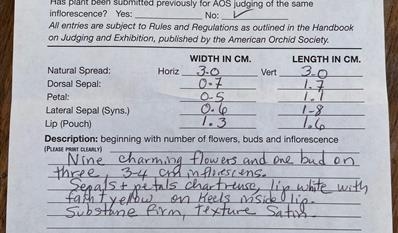 Has plant been submitted previously for AOS judging of the same
inflorescence? Yes: No: ✓
All entries are subject to Rules and Regulations as outlined in the Handbook
on Judging and Exhibition, published by the American Orchid Society.
WIDTH IN CM. LENGTH IN CM.
Natural Spread: Horiz 3.0 Vert 3.0
Dorsal Sepal: 0.7 1.7
Petal: 0.5 1.7
Lateral Sepal (Syns.) 0.6 1.8
Lip (Pouch) 1.3 1.6
Description: beginning with number of flowers, buds and inflorescence
(PLEASE PRINT CLEARLY) Nine charming flowers and one bud on
three, 3-4 cm inflrescens.
Sepals + petals chartreuse, lip white with
faint yellow on keels inside lip.
Substane firm, texture Satin.